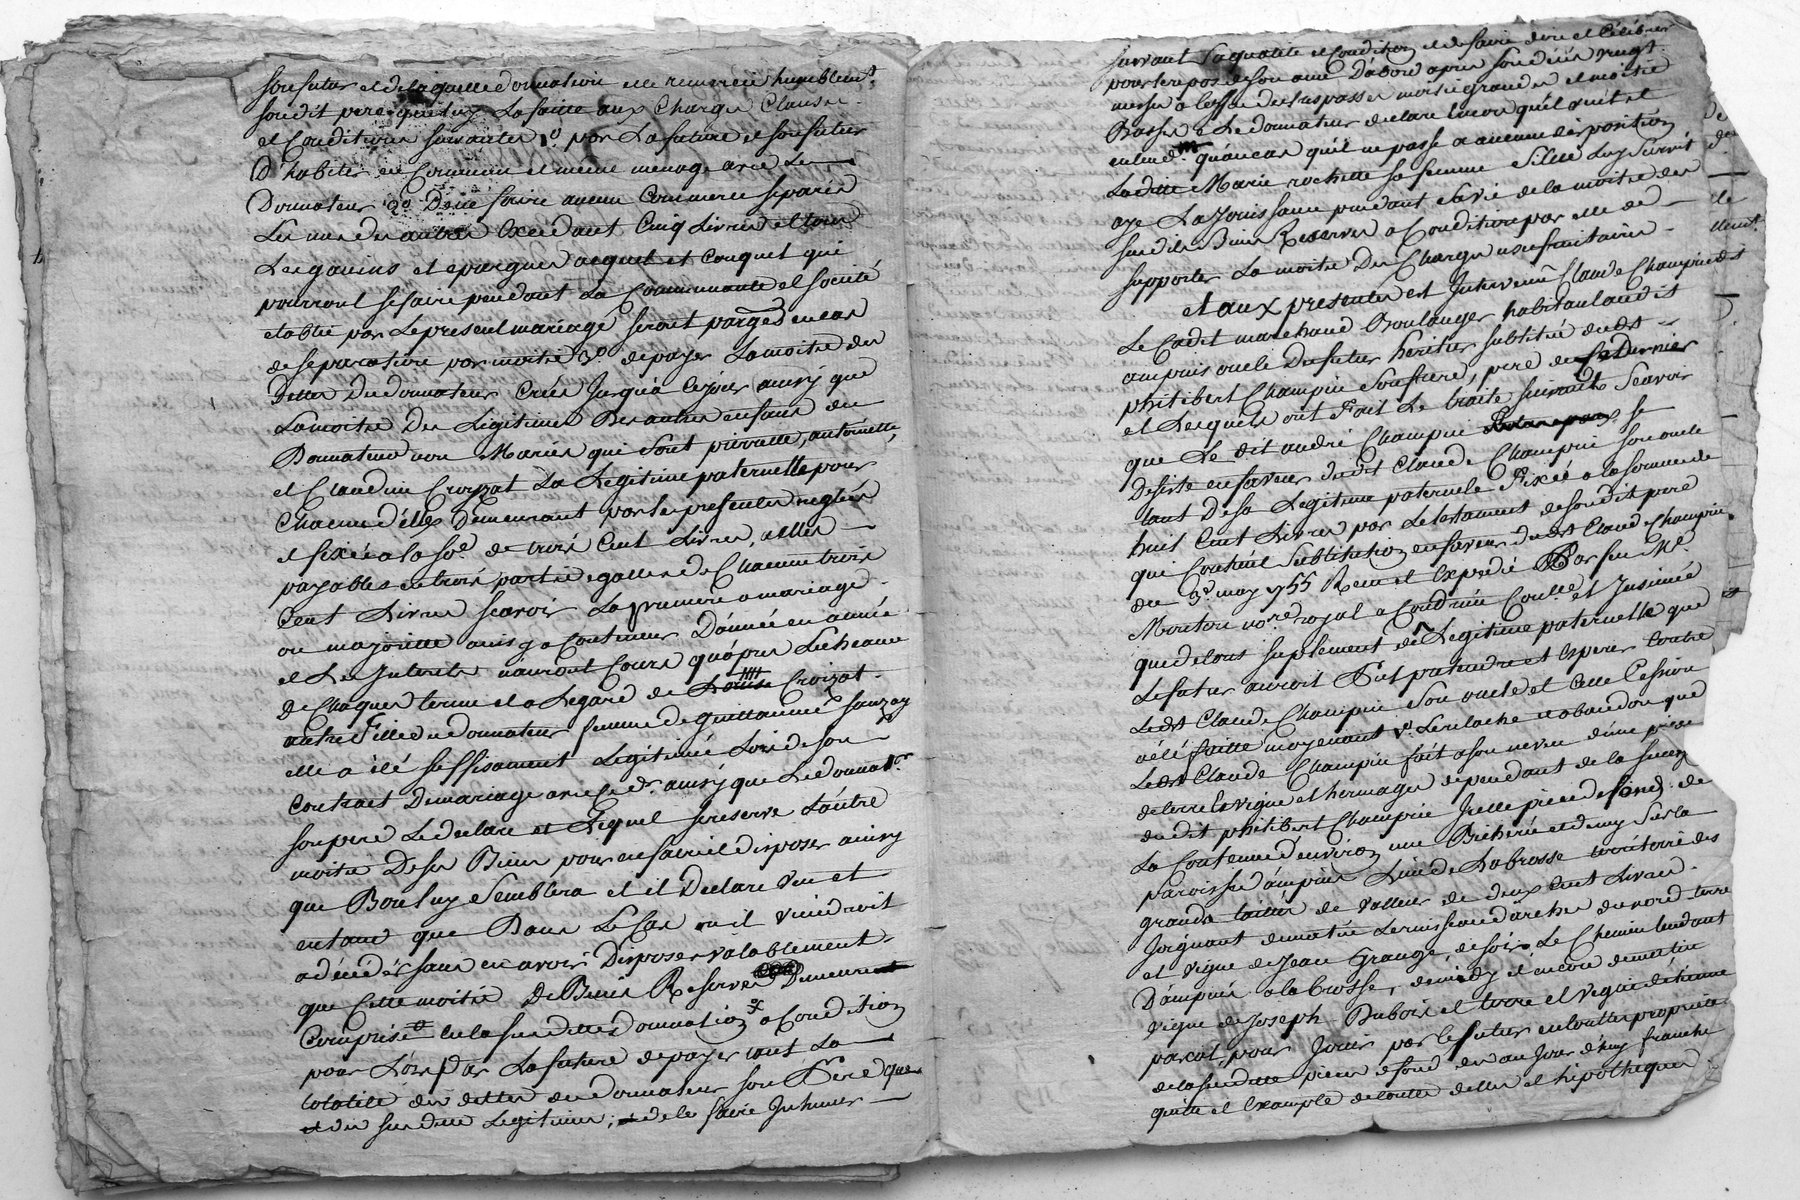 son futur et de laquelle donnation elle remercie humblemt.
sondit pere qui luy La faitte aux Charges Clauses
et Conditions suivantes 1º. par La future et son futur
D'habiter en Commun et même menage avec Le
Donnateur 2º De ne faire aucun Commerce separés
Les uns des autres Excedant Cinq Livres et tous
Les gains et epargnes acquet et Conquet qui
pourront se faire pendant La Communauté et societé
etablie par Le present mariage seront partagés en cas
de separation par moitié 3º de payer La moitié des
Dettes Du donnateur Créés Jusqu'a ce jour ainsy que
La moitié Des Legitimes Des autres enfans du
Donnateur non Mariés qui sont pierrette, antoinette,
et Claudine Croizat La Legitime paternelle pour
Chacune d'elles Demeurant par les presentes reglée
et fixée a la so.e de trois Cent Livres, a Elles
payables en trois partie egalles de Chacune trois
Cent Livres scavoir La premiere a mariage
ou majorité ainsy a Continuer D'année en année
et Les Interets n'auront Cours qu'apres L'echeance
De Chaques terme et a L'egard de Louise Croizat
autre Fille du donnateur femme de guillaume sauzay
elle a été suffisament Legitimée Lors de son
Contract De mariage avec ce dr. ainsy que Le donnatr.
son pere Le declare et Lequel se reserve L'autre
moitié De ses Biens pour en faire et disposer ainsy
que Bon luy semblera et il Declare Veu et
entand que Dans Le Cas ou il viendroit
a décéder sans en avoir Disposer valablement
que Cette moitié De Biens Reservés Demeurent
Comprise en la susditte donnation a Condition
pour Lors par La future de payer tout La
totalité des dettes du donnateur son Pere que
des susditte Legitimes; et de le faire Inhumer
suivant sa qualité et Condition et de faire dire et Célébrer
pour le repos de son ame D'abord apres son décés vingt
messes a Loffice des trespassés moitié grandes et moitié
Basses et Le donnateur declare Encore qu'il veut et
entend qu'au cas qu'il ne passe a aucune disposition
Laditte Marie rochette sa femme Si Elle Luy survit
aye La Jouissance pendant sa vie de la moitié des
susdits Biens Reservés a Condition par elle de
supporter La moitié Des Charges usufruitaires
et aux presentes est Intervenu Claude Champin dt
Le Cadit marchand Boulanger habitant audit
ampuis oncle Du futur heritier substitué dudt
philibert Champin son frere, pere de Ce Dernier
et Lesquels ont Fait Le traité suivant Scavoir
que Le dit andré Champin se
Desiste en faveur dudit Claude Champin son oncle
tant de sa Legitime paternele Fixée a la somme de
huit Cent Livres par Le testament de sondit pere
qui Contient Substitution en faveur dudt Claude Champin
du 3e may 1755 Recu et Expedié Par feu Me.
Mouton nore. royal a Condrieu Conllé et Insinué
que de tous suplement de Legitime paternelle que
Le futur auroit Put pretendre et Esperer Contre
Ledt Claude Champin Son oncle et Cette Cession
a été faitte moyenant Le relache et abandon que
Ledt Claude Champin fait a son neveu d'une piece
de terre Vigne et hermages dependant de la succn.
dudit philibert Champin Icelle piece de fond de
La Contenue d'environ une Bicherée et demy sur la
paroisse d'ampuis Lieu de Labrosse territoire des
grands taillis de valleur de deux Cent Livres
Joignant de matin Le ruisseau d'arches du nord terre
et Vigne de Jean Grange, de soir Le Chemin tendant
D'ampuis a la brosse, de midy et encore de matin
Vigne de Joseph Dubois et terre et vigne d'étienne
parcot, pour Jouir par le futur en toutte proprieté
de la susditte piece de fond des au Jour d'huy franche
quitte et Example de toutte dettes et hipotheques